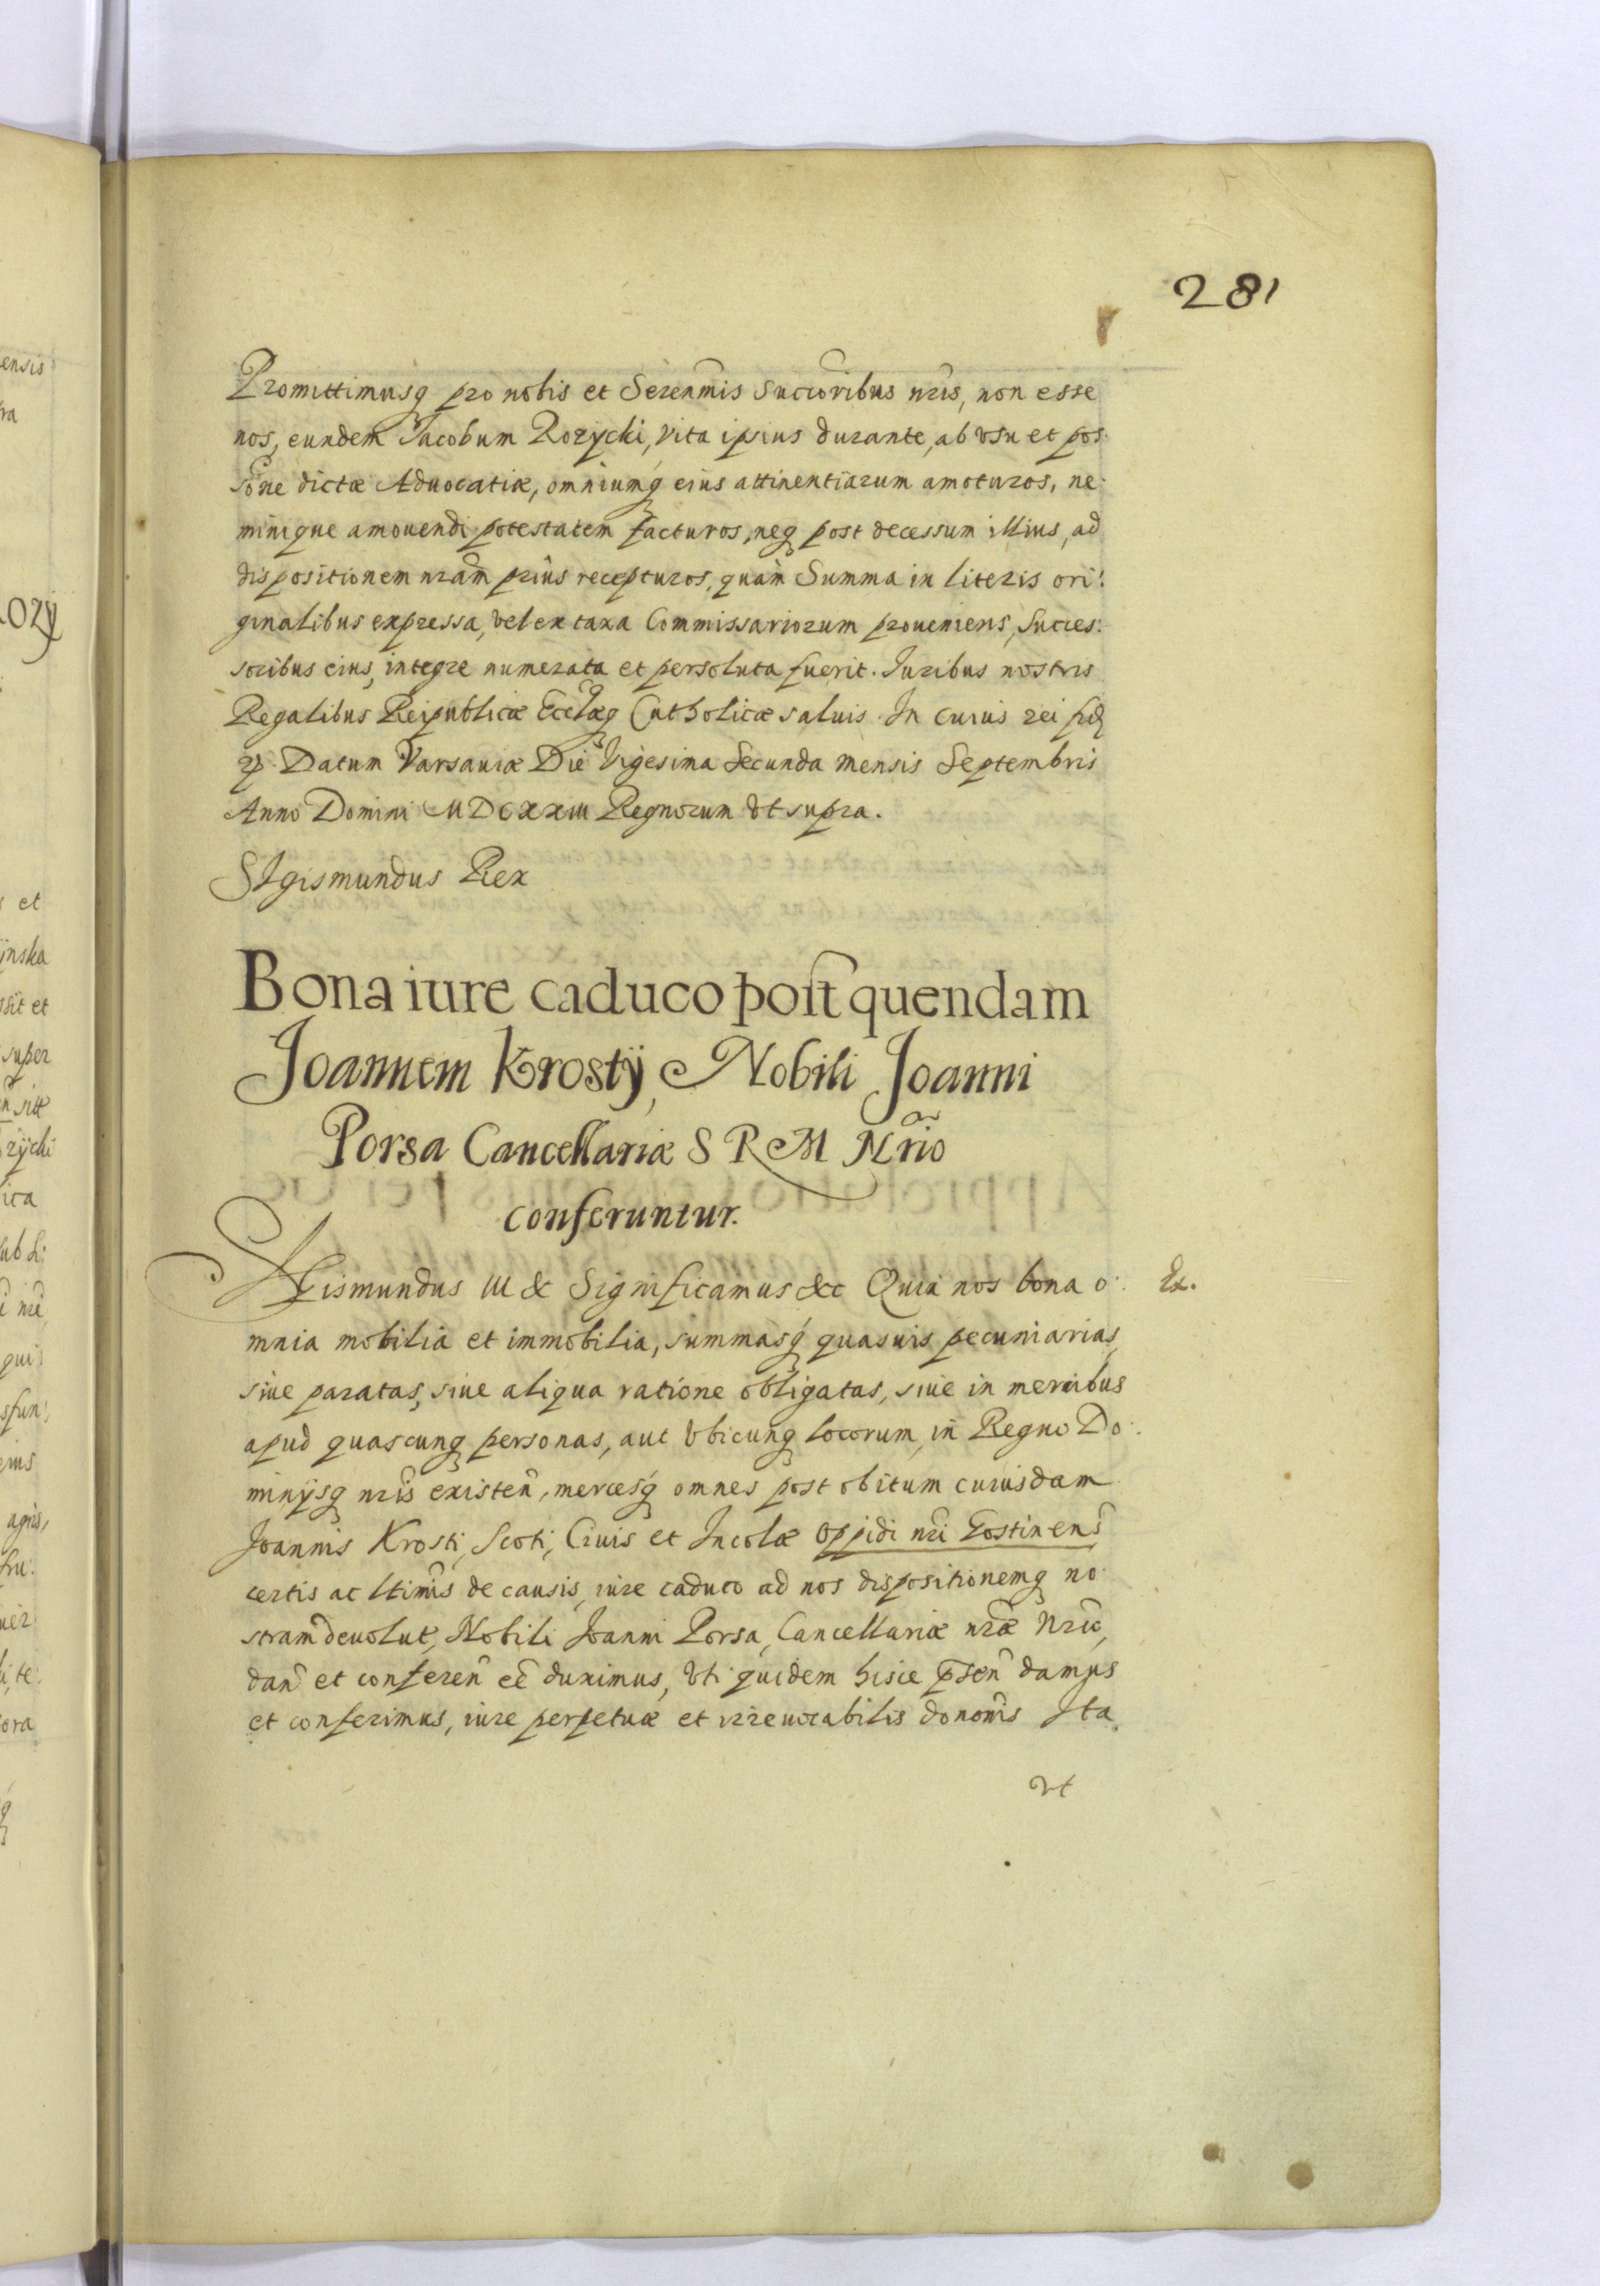 281
Promittimusq pro nobis et Serenmis Succoribus nris, non esse
nos, eundem Jacobum Rozycki, vita ipsius durante, ab vsu et pos
sone dictæ Aduocatiæ, omniumq eius attinentiarum amoturos, ne
minique amouendi potestatem facturos, neq post decessum illius, ad
dispositionem nram prius recepturos, quam Summa in literis ori:
ginalibus expressa, vel ex taxa Commissariorum proueniens, Succes:
soribus eius, integre numerata et persoluta fuerit. Juribus nostris
Regalibus Reipublicæ Ecclæq Catholicæ saluis. In cuius rei fid
Datum Varsauiæ Die Vigesima Secunda Mensis Septembris
Anno Domini MDCXXIII Regnorum vt supra.
SIgismundus Rex
Bona iure caduco post quendam
Joannem Krostÿ, Nobili Joanni
Porsa Cancellariæ S R M Nrio
conferuntur.
SIgismundus III & Significamus &c Quia nos bona o: Ex.
mnia mobilia et immobilia, summasq quasuis pecuniarias,
siue paratas, siue aliqua ratione obligatas, siue in mercibus
apud quascunq personas, aut vbicunq locorum, in Regno Do:
minijsq nris existen, mercesq omnes post obitum cuiusdam
Joannis Krosti, Scoti, Ciuis et Incolæ Oppidi nri Gostinens
certis ac ltimis de causis, iure caduco ad nos dispositionemq no
stram deuolut, Nobili Joanni Porsa, Cancellariæ nræ Nrio,
dan et conferen ee duximus, vti quidem hisce psen damus
et conferimus, iure perpetuæ et irreuocabilis dononis Ita
vt